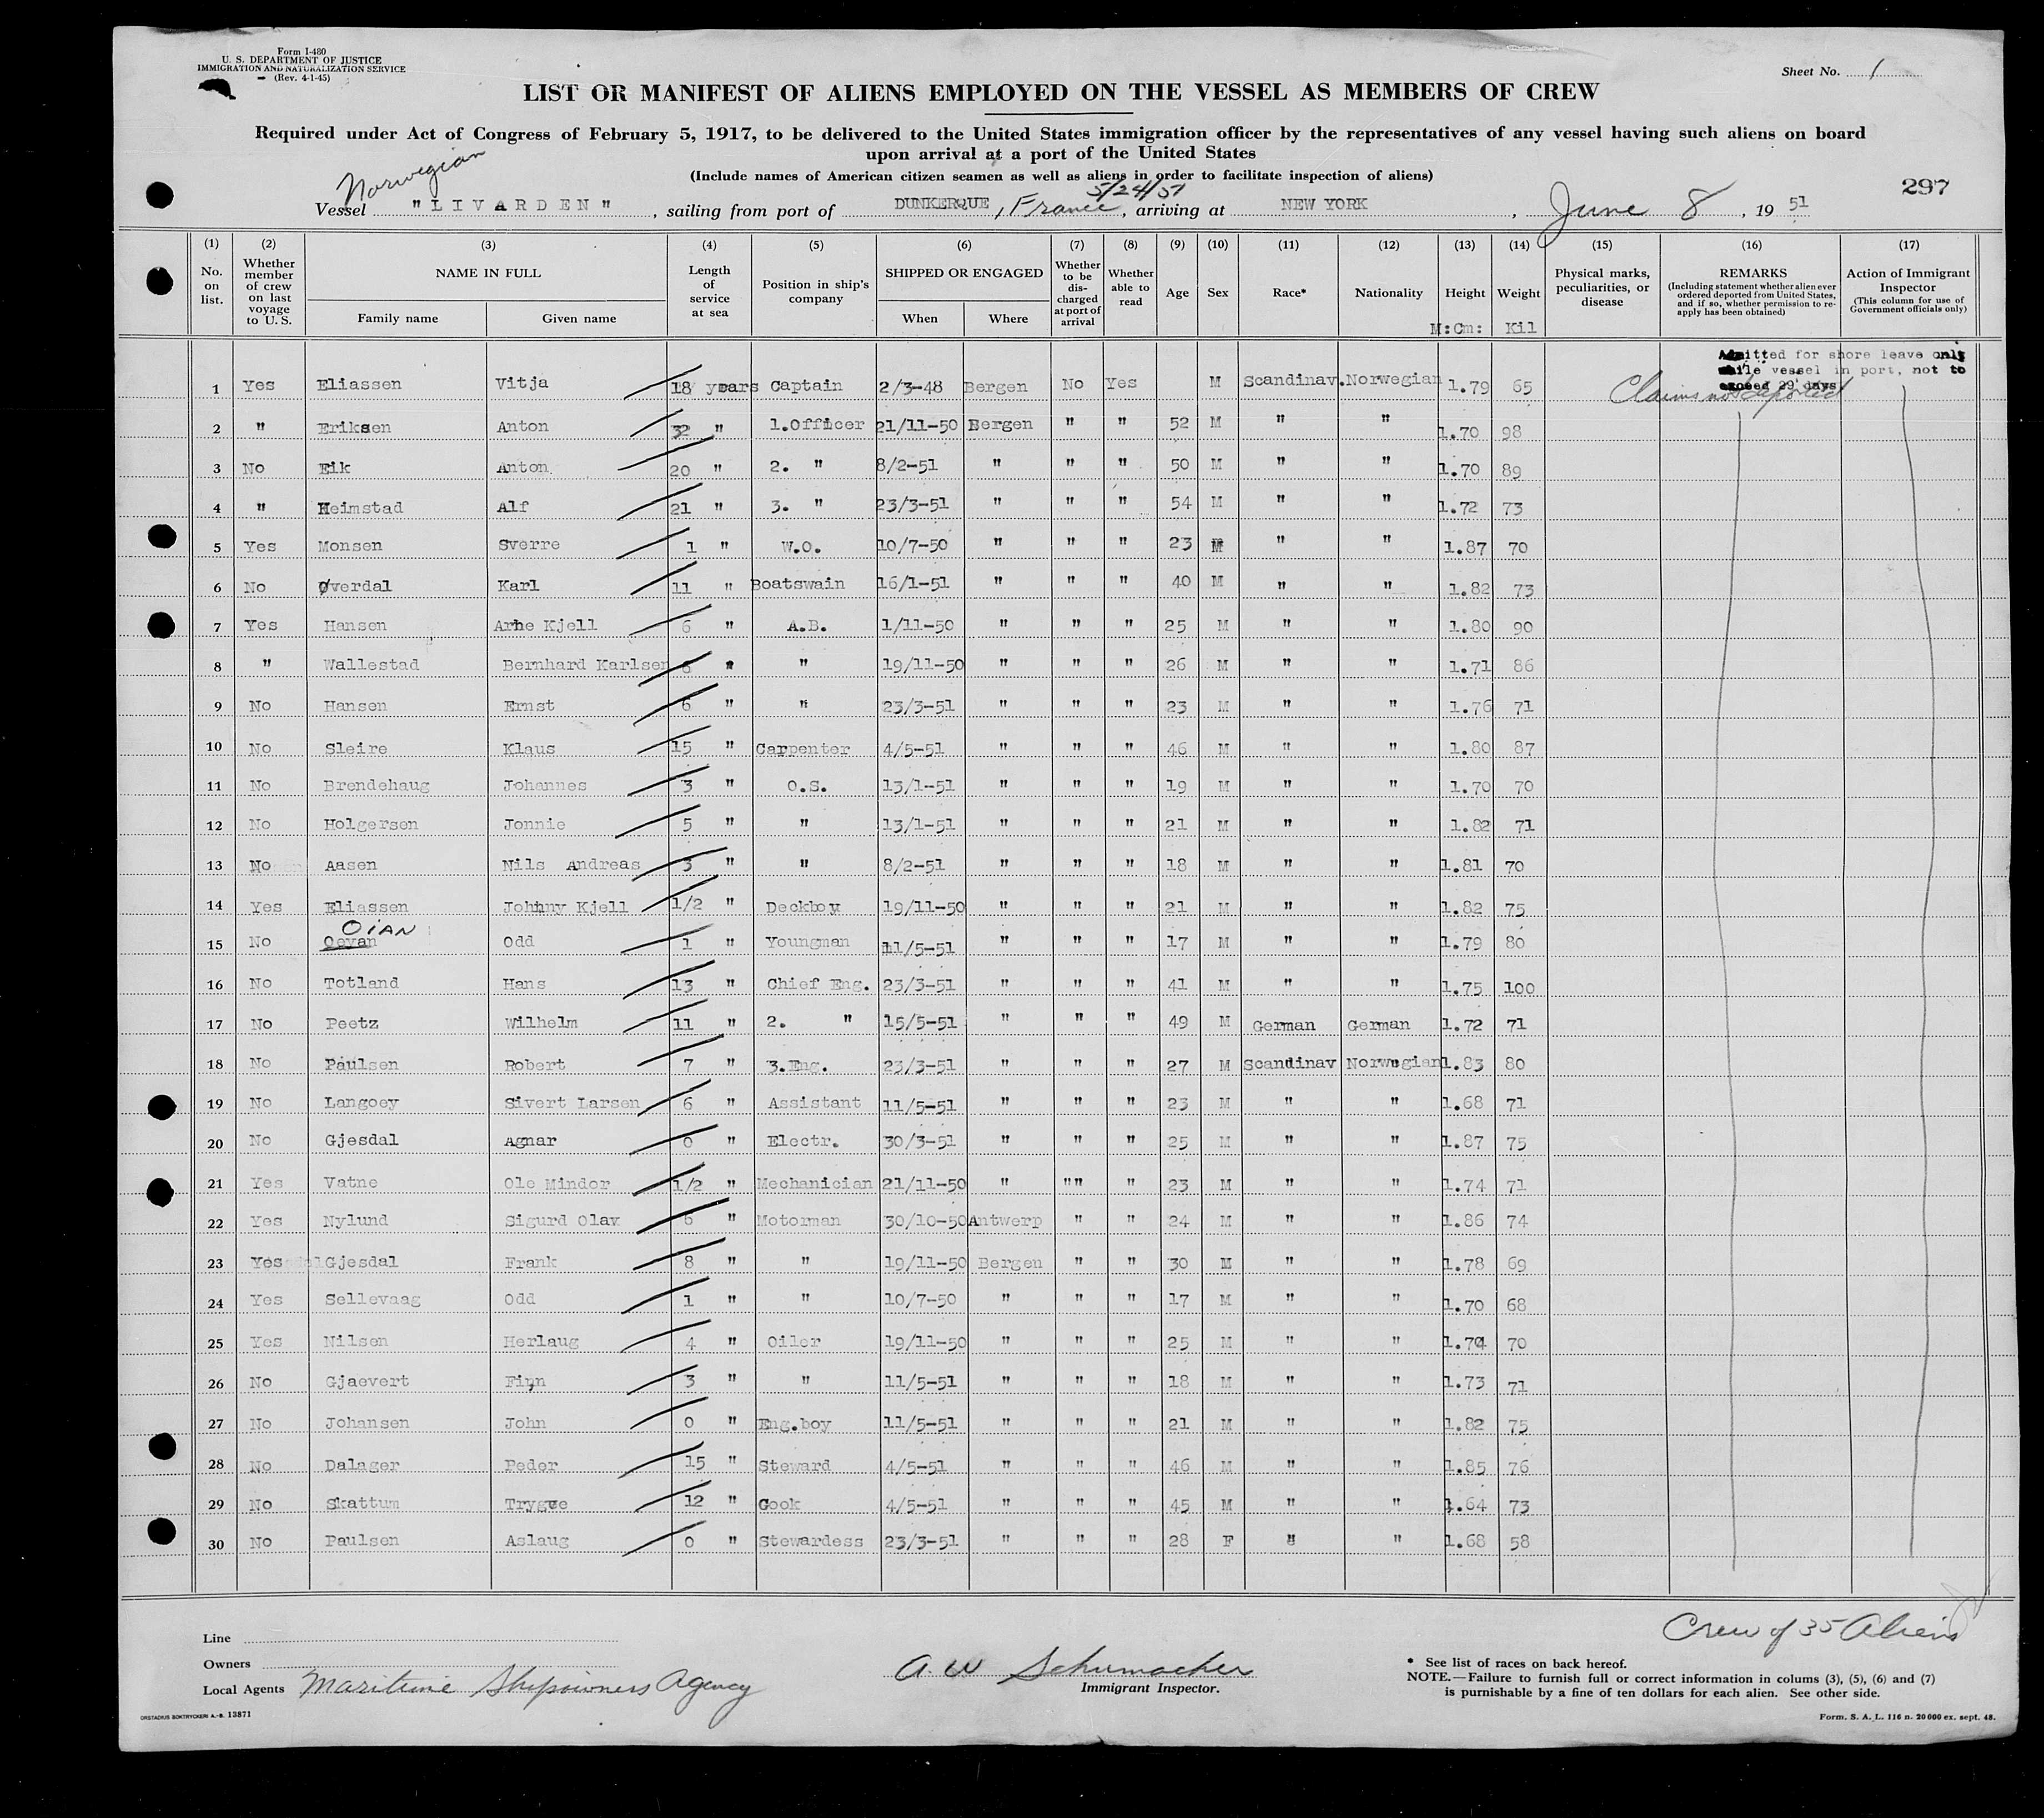 Form I-480
U. S. DEPARTMENT OF JUSTICE
IMMIGRATION AND NATURALIZATION SERVICE
(Rev. 4-1-45)
Sheet No. 1
LIST OR MANIFEST OF ALIENS EMPLOYED ON THE VESSEL AS MEMBERS OF CREW
Required under Act of Congress of February 5, 1917, to be delivered to the United States immigration officer by the representatives of any vessel having such aliens on board
upon arrival at a port of the United States
(Include names of American citizen seamen as well as aliens in order to facilitate inspection of aliens)
297
Norwegian
5/24/51
Vessel "LIVARDEN", sailing from port of DUNKERQUE, France, arriving at NEW YORK, June 8, 1951
(1) (2) (3) (4) (5) (6) (7) (8) (9) (10) (11) (12) (13) (14) (15) (16) (17)
No. on list. Whether member of crew on last voyage to U. S. NAME IN FULL Family name Given name Length of service at sea Position in ship's company SHIPPED OR ENGAGED When Where Whether to be discharged at port of arrival Whether able to read Age Sex Race* Nationality Height Weight Physical marks, peculiarities, or disease REMARKS (Including statement whether alien ever ordered deported from United States, and if so, whether permission to reapply has been obtained) Action of Immigrant Inspector (This column for use of Government officials only)
M:Cm: Kil
Admitted for shore leave only
while vessel in port, not to
exceed 29 days
Claims not deported
1 Yes Eliassen Vitja 18 years Captain 2/3-48 Bergen No Yes M Scandinav. Norwegian 1.79 65
2 " Eriksen Anton 32 " 1.Officer 21/11-50 Bergen " " 52 M " " 1.70 98
3 No Eik Anton 20 " 2. " 8/2-51 " " " 50 M " " 1.70 89
4 " Heimstad Alf 21 " 3. " 23/3-51 " " " 54 M " " 1.72 73
5 Yes Monsen Sverre 1 " W.O. 10/7-50 " " " 23 M " " 1.87 70
6 No Øverdal Karl 11 " Boatswain 16/1-51 " " " 40 M " " 1.82 73
7 Yes Hansen Arne Kjell 6 " A.B. 1/11-50 " " " 25 M " " 1.80 90
8 " Wallestad Bernhard Karlsen 6 " " 19/11-50 " " " 26 M " " 1.71 86
9 No Hansen Ernst 6 " " 23/3-51 " " " 23 M " " 1.76 71
10 No Sleire Klaus 15 " Carpenter 4/5-51 " " " 46 M " " 1.80 87
11 No Brendehaug Johannes 3 " O.S. 13/1-51 " " " 19 M " " 1.70 70
12 No Holgersen Jonnie 5 " " 13/1-51 " " " 21 M " " 1.82 71
13 No Aasen Nils Andreas 3 " " 8/2-51 " " " 18 M " " 1.81 70
14 Yes Eliassen Johnny Kjell 1/2 " Deckboy 19/11-50 " " " 21 M " " 1.82 75
OIAN
15 No Oeyan Odd 1 " Youngman 11/5-51 " " " 17 M " " 1.79 80
16 No Totland Hans 13 " Chief Eng. 23/3-51 " " " 41 M " " 1.75 100
17 No Peetz Wilhelm 11 " 2. " 15/5-51 " " " 49 M German German 1.72 71
18 No Paulsen Robert 7 " 3.Eng. 23/3-51 " " " 27 M Scandinav Norwegian 1.83 80
19 No Langoey Sivert Larsen 6 " Assistant 11/5-51 " " " 23 M " " 1.68 71
20 No Gjesdal Agnar 0 " Electr. 30/3-51 " " " 25 M " " 1.87 75
21 Yes Vatne Ole Mindor 1/2 " Mechanician 21/11-50 " "" " 23 M " " 1.74 71
22 Yes Nylund Sigurd Olav 6 " Motorman 30/10-50 Antwerp " " 24 M " " 1.86 74
23 Yes Gjesdal Frank 8 " " 19/11-50 Bergen " " 30 M " " 1.78 69
24 Yes Sellevaag Odd 1 " " 10/7-50 " " " 17 M " " 1.70 68
25 Yes Nilsen Herlaug 4 " Oiler 19/11-50 " " " 25 M " " 1.74 70
26 No Gjaevert Finn 3 " " 11/5-51 " " " 18 M " " 1.73 71
27 No Johansen John 0 " Eng.boy 11/5-51 " " " 21 M " " 1.82 75
28 No Dalager Peder 15 " Steward 4/5-51 " " " 46 M " " 1.85 76
29 No Skattum Trygve 12 " Cook 4/5-51 " " " 45 M " " 1.64 73
30 No Paulsen Aslaug 0 " Stewardess 23/3-51 " " " 28 F " " 1.68 58
Crew of 35 Aliens
Line
Owners
Local Agents Maritime Shipowners Agency
A. W Schumacher
Immigrant Inspector.
* See list of races on back hereof.
NOTE.—Failure to furnish full or correct information in colums (3), (5), (6) and (7)
is punishable by a fine of ten dollars for each alien. See other side.
ORSTADIUS BOKTRYCKERI A.-B. 13871
Form. S. A. L. 116 n. 20 000 ex. sept. 48.